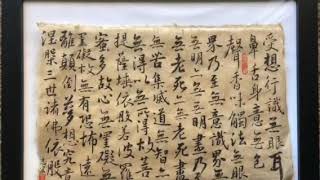 受想行識無眼耳
鼻舌身意無色
聲香味觸法無眼
界乃至無意識界
無明亦無無明盡乃
至無老死亦無老死盡
無苦集滅道無智亦
無得以無所得故菩
提薩埵依般若波羅
蜜多故心無罣礙無
罣礙故無有恐怖遠
離顛倒夢想究竟
涅槃三世諸佛依般